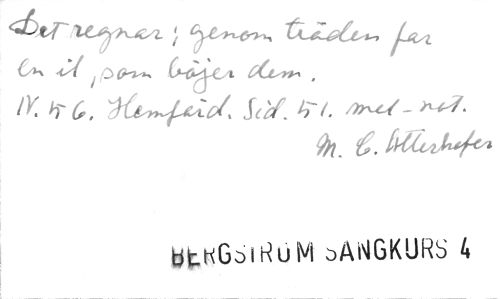 Det regnar; genom träden far
en il, som böjer dem.
IV. 56. Hemfärd. Sid. 51. mel-not.
M. C. Utterhofer
BERGSTRÖM SÅNGKURS 4